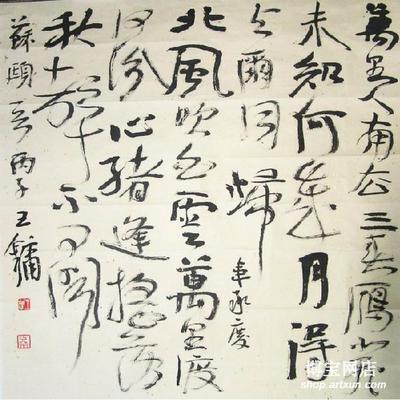 萬里人南去三春雁北飛
未知何歲月得
与爾同歸
韋承慶
北風吹白雲萬里度
河汾心緒逢搖落
秋聲不可聞
蘇頲 丙子王鏞
博宝网店
shop.artxun.com